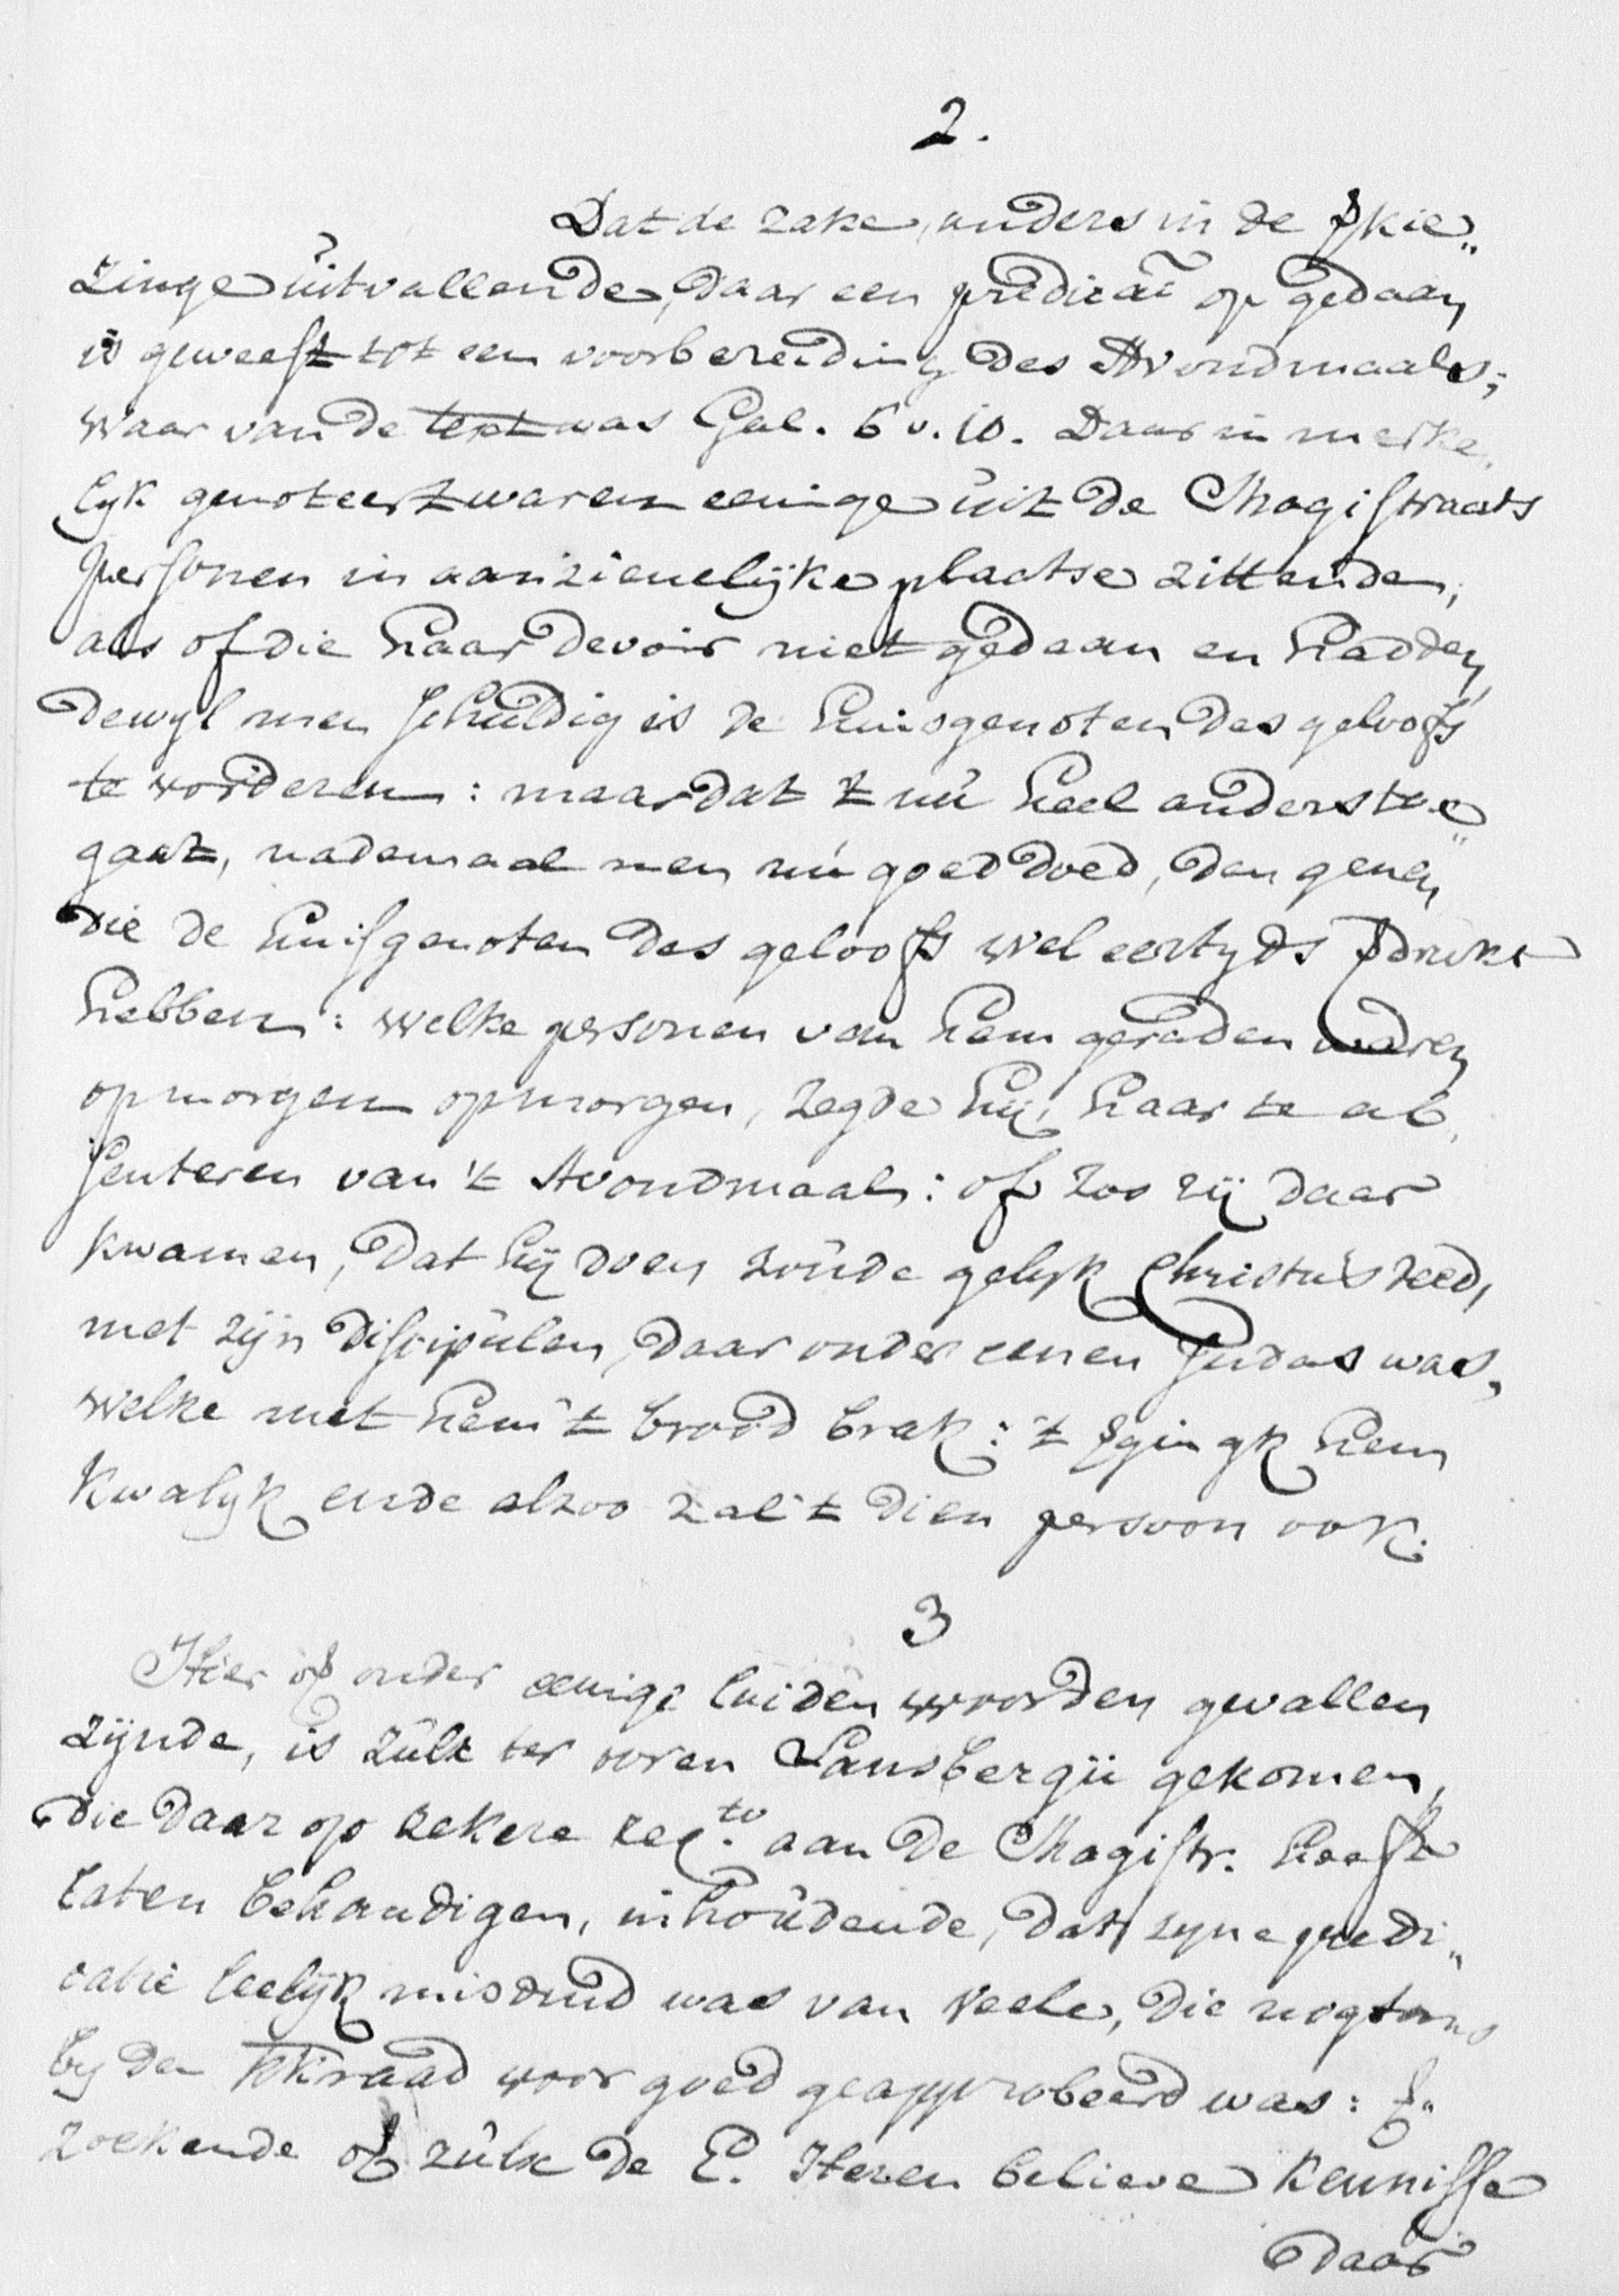 2.
Dat de zake, anders in de ꝟkie„
zinge uitvallende, daar een predicaē op gedaan
is geweest tot een voorbereiding des Avondmaals;
waar van de text was Gal. 6 v. 10. Daar in merke„
lyk genoteert waren eenige uit de Magistraats
personen in aanzienelijke plaatse zittende,
als of die haar devoir niet gedaan en hadden,
dewyl men schuldig is de huisgenoten des geloofs
te vorderen: maar dat 't nu heel anders toe„
gaat, nademaal men nu goed doed, den genen
die de huisgenoten des geloofs wel eertyds ꝟdrukt
hebben: welke personen van hem geraden waren
op morgen op morgen, zegde hij, haar te ab„
senteren van 't Avondmaal: of zoo zij daar
kwamen, dat hij doen zoude gelyk Christus deed,
met zijn discipulen, daar onder eenen Judas was,
welke met hem 't brood brak: 't ꝟgingk hem
kwalyk ende alzoo zal 't dien persoon ook.
3
Hier of onder eenige luiden woorden gevallen
zijnde, is zulx ter ooren Lansbergii gekomen,
die daar op zekere req.to aan de Magistr. heeft
laten behandigen, inhoudende, dat zyne predi„
catie leelijk misduid was van veele, die nogtans
by den kkraad voor goed geapprobeerd was: ꝟ„
zoekende of zulx de E. Heren believe kennisse
daar